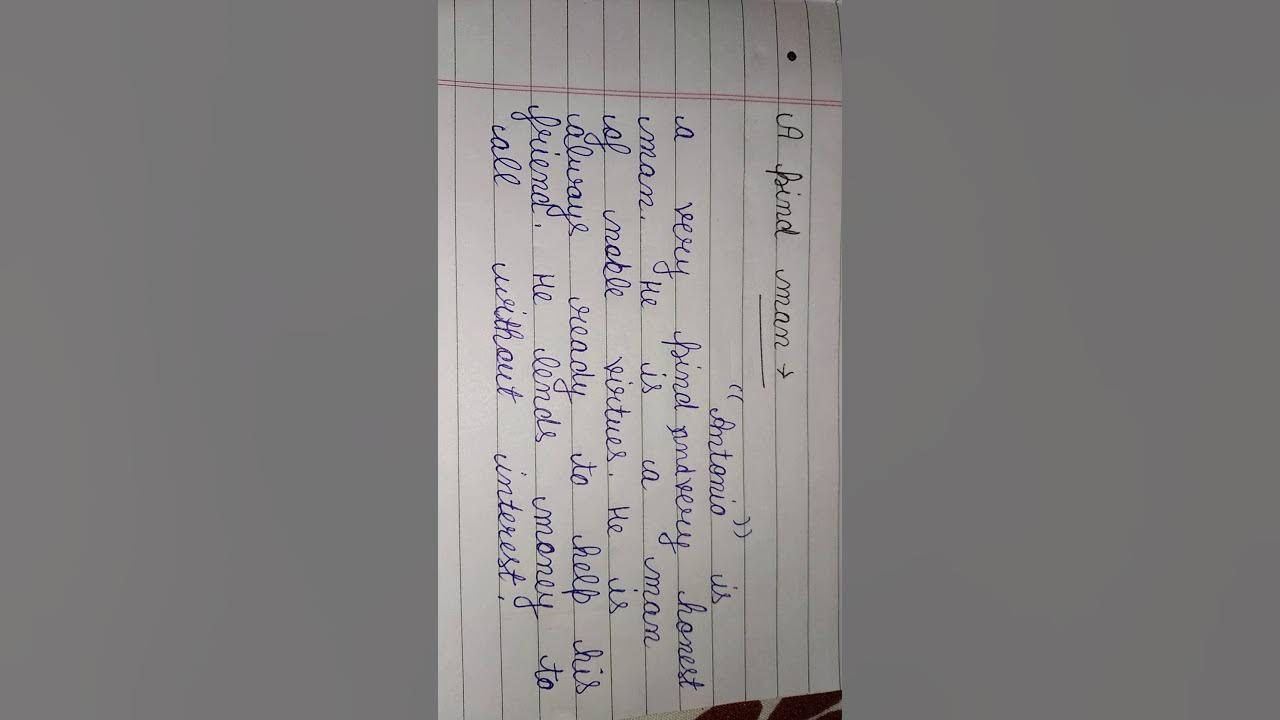 • A kind man →
"Antonio" is
a very kind and very honest
man. He is a man
of noble virtues. He is
always ready to help his
friend. He lends money to
all without interest.